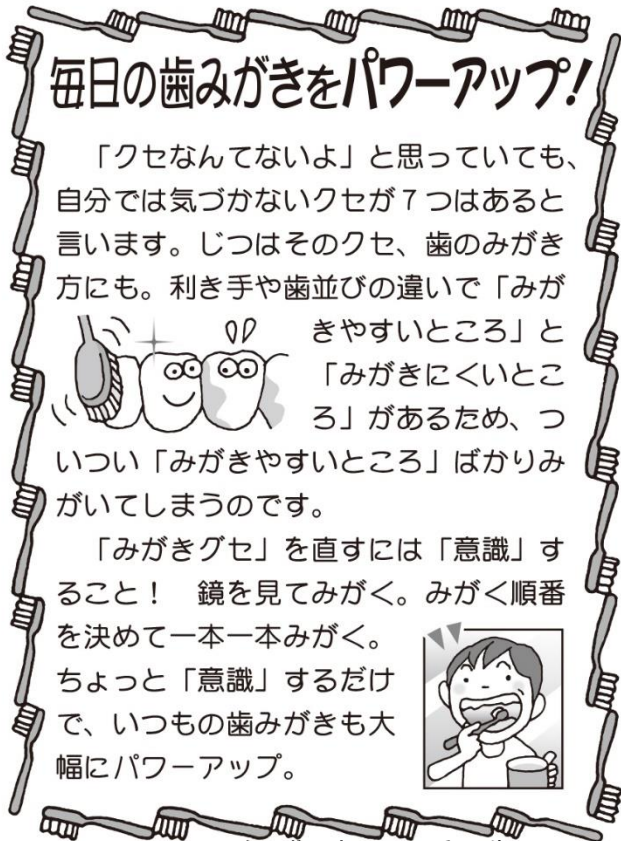 毎日の歯みがきをパワーアップ!
「クセなんてないよ」と思っていても、
自分では気づかないクセが7つはあると
言います。じつはそのクセ、歯のみがき
方にも。利き手や歯並びの違いで「みが
きやすいところ」と
「みがきにくいとこ
ろ」があるため、つ
いつい「みがきやすいところ」ばかりみ
がいてしまうのです。
「みがきグセ」を直すには「意識」す
ること! 鏡を見てみがく。みがく順番
を決めて一本一本みがく。
ちょっと「意識」するだけ
で、いつもの歯みがきも大
幅にパワーアップ。